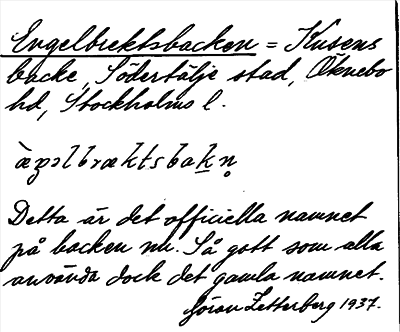 Engelbrektsbacken = Kusens
backe, Södertälje stad, Öknebo
hd, Stockholms l.
Detta är det officiella namnet
på backen nu. Så gott som alla
använda dock det gamla namnet.
Göran Zetterberg 1937.